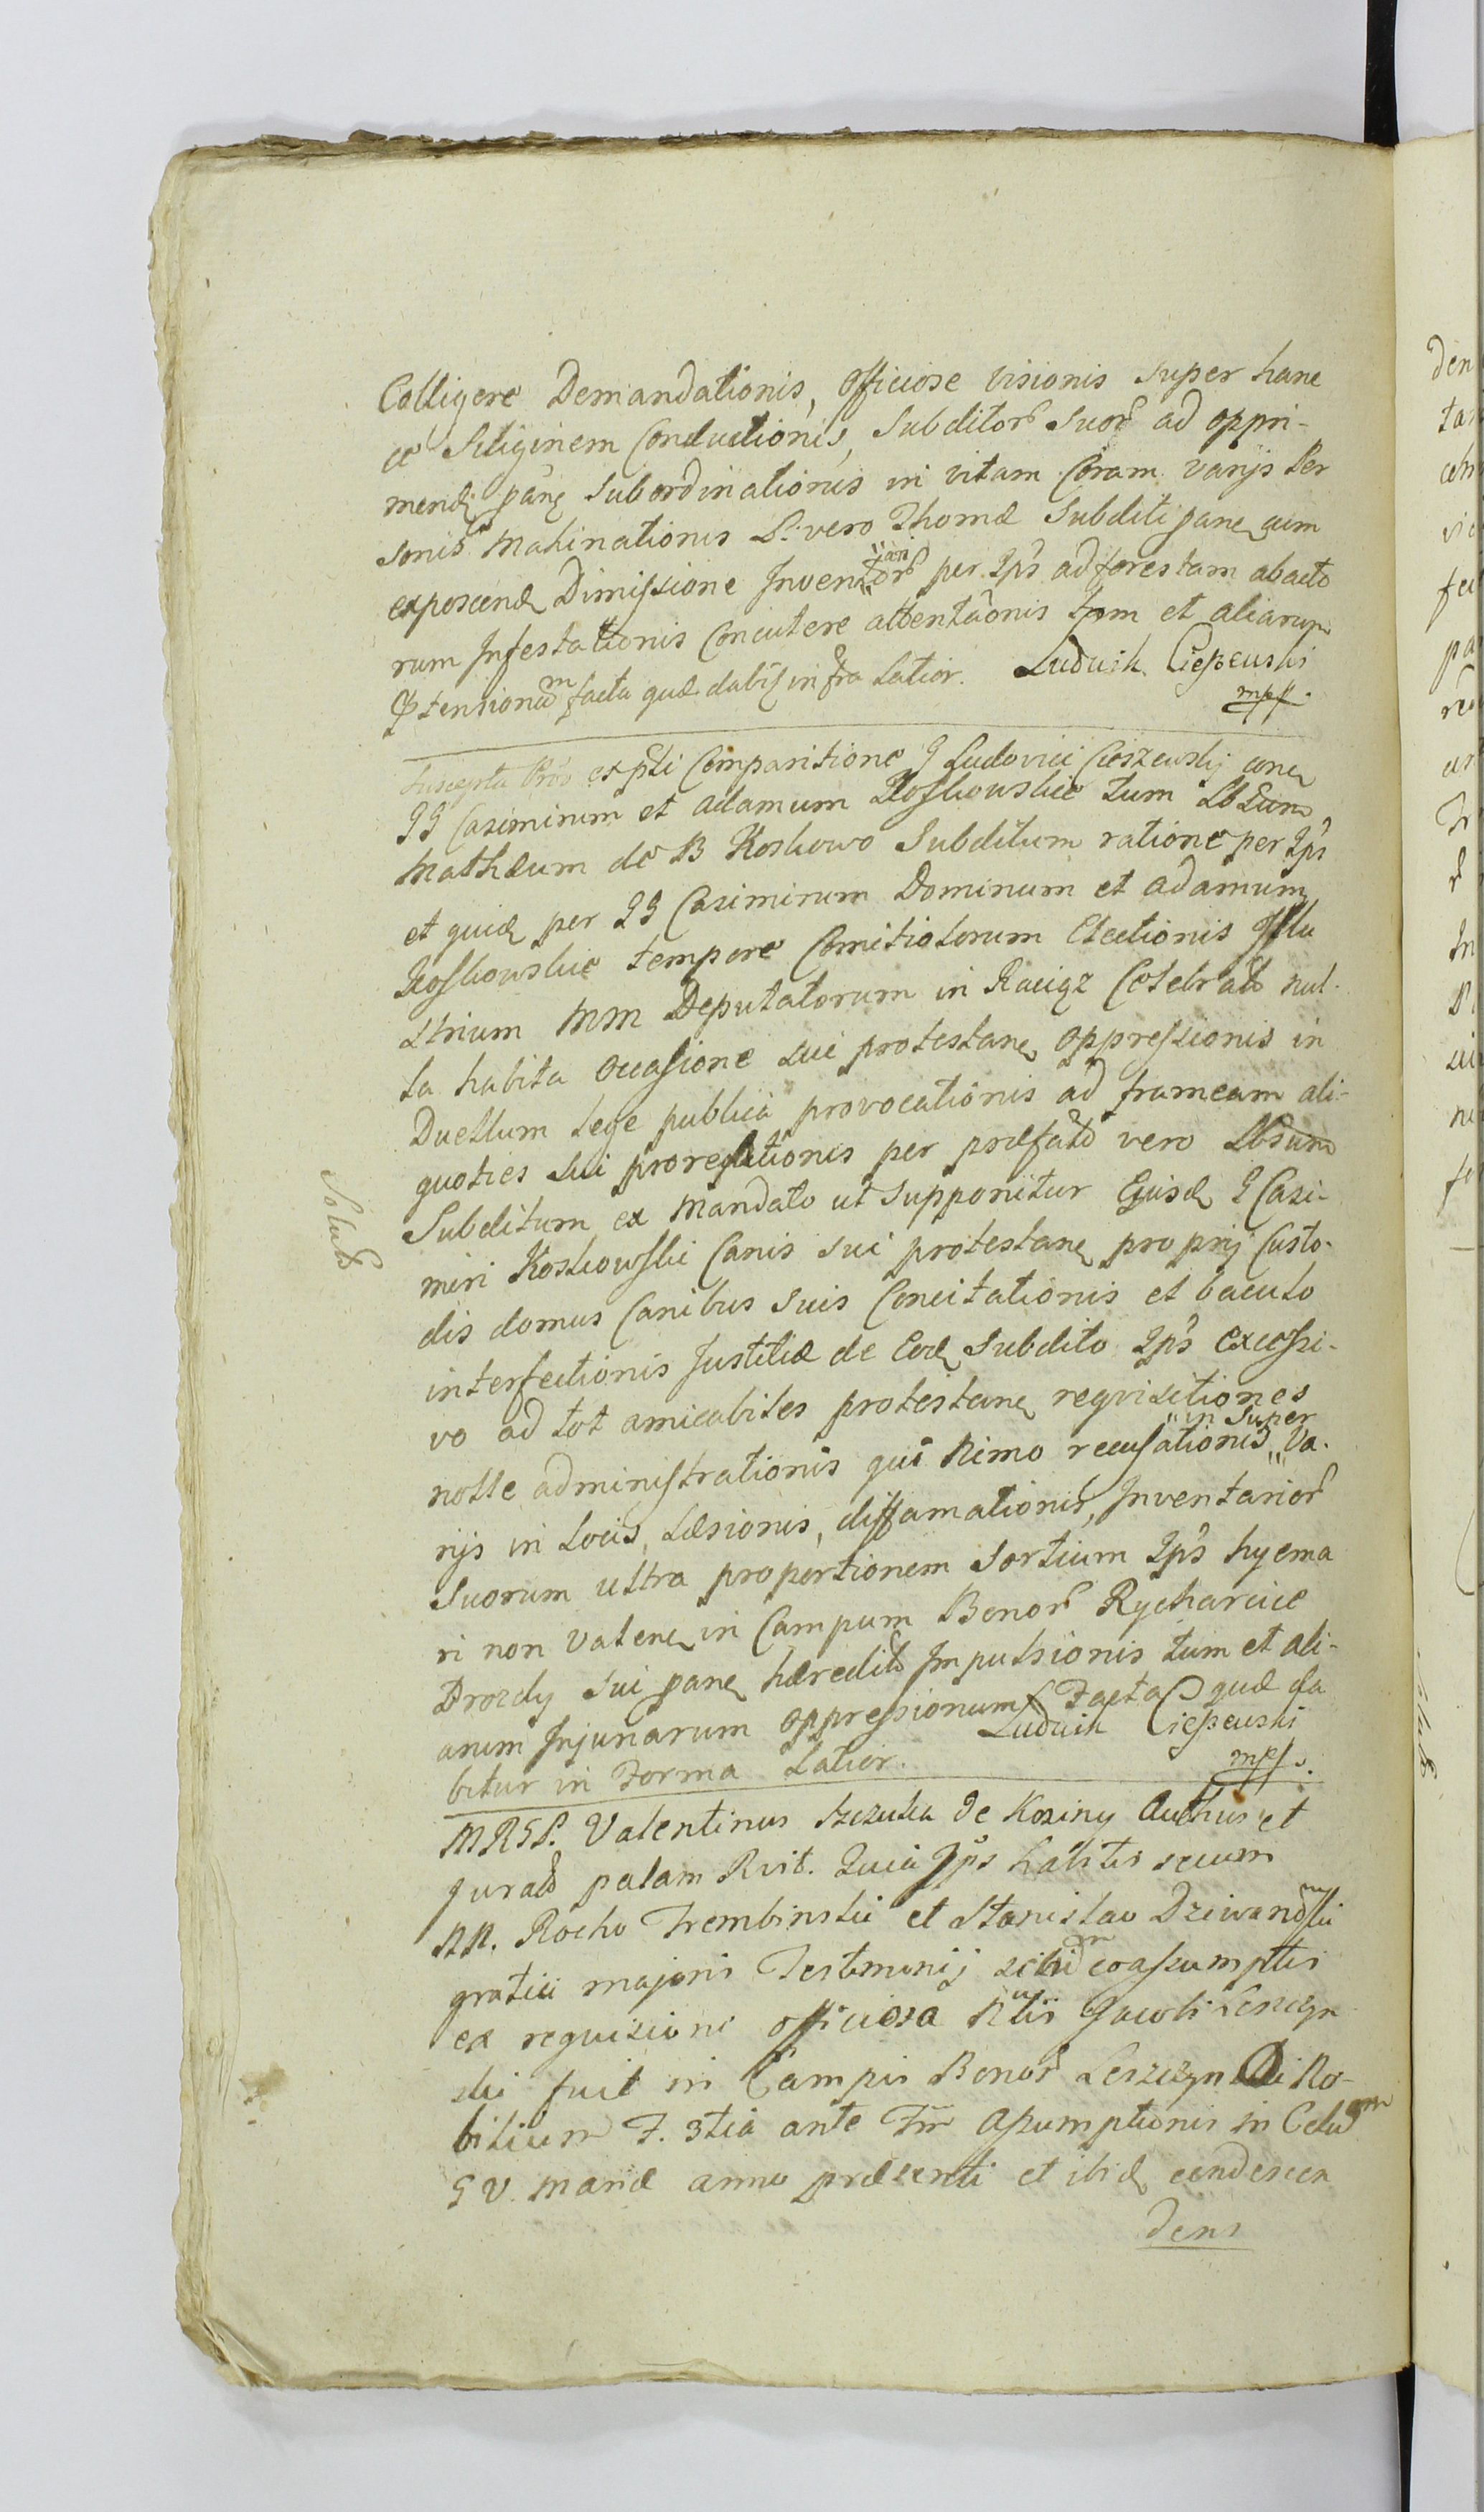 Colligere Demandationis, officiose visionis super hanc
ce Siliginem Conductionis, Subditor Suor ad oppri-
mend pane Subordinationis in vitam Coram varijs Per
sonis Mahinationis L. vero Thomæ Subditi pane cum
exposcend Dimissione Inventor "ari" per Ips ad forestam abacto
rum Infestationis Concutere attentaonis tum et aliarum
Ptensionum facta quæ dabit infra Latior. Ludwik Cieszewski
mpp.
Suscepta Pros expti Comparitione G Ludovici Cieszewskij conę
GG Casimirum et Adamum Koskowskie tum Lbsum
Mathæum de B Koskowo Subditum ratione per Ips
et quid per GG Casimirum Dominum et Adamum
Koskowskie tempore Comitiolorum Electionis Illu
strium MM Deputatorum in Raciąz Celebrat nul-
la habita occasione sui protestanę oppressionis in
Duellum lege publica provocationis ad frameam ali-
quoties sui proreptionis per præfat vero Lbsum
Subditum ex Mandato ut supponitur Ejusd G Casi-
miri Koskowski Canis sui protestanę proprij Custo-
dis domus Canibus suis Concitationis et baculo
interfectionis Justitiæ de Eod Subdito Ips Excessi-
vo ad tot amicabiles protestanę requisitiones
nolle administrationis qui nimo recusationis "in super" Va-
rijs in Locis, Læsionis, diffamationis, Inventarior
Suorum ultra proportionem Sortium Ips hyema
ri non valenę in Campum Bonor Rycharcice
Drozdy sui panę hæredit Impulsionis tum et ali-
arum Injuriarum oppressionum Facta quæ da
bitur in Forma Latior. Ludwik Cieszewski
mpp.
Solut
MRGL. Valentinus Szczutka de Koziny Authus et
Jurat palam Rvit. Quia Ips habitis secum
NN. Rocho Trembinski et Stanislao Dziwanoski
gratia majoris Testimonij sibi coassumptis
ex requisione officiosa Nlis Jacobi Leszczyn
ski fuit in Campis Bonor Leszczyn Di No-
bilium F. 3tia ante Fm Assumptionis in Celum
G V. Mariæ anno præsenti et ibid condescen
dens